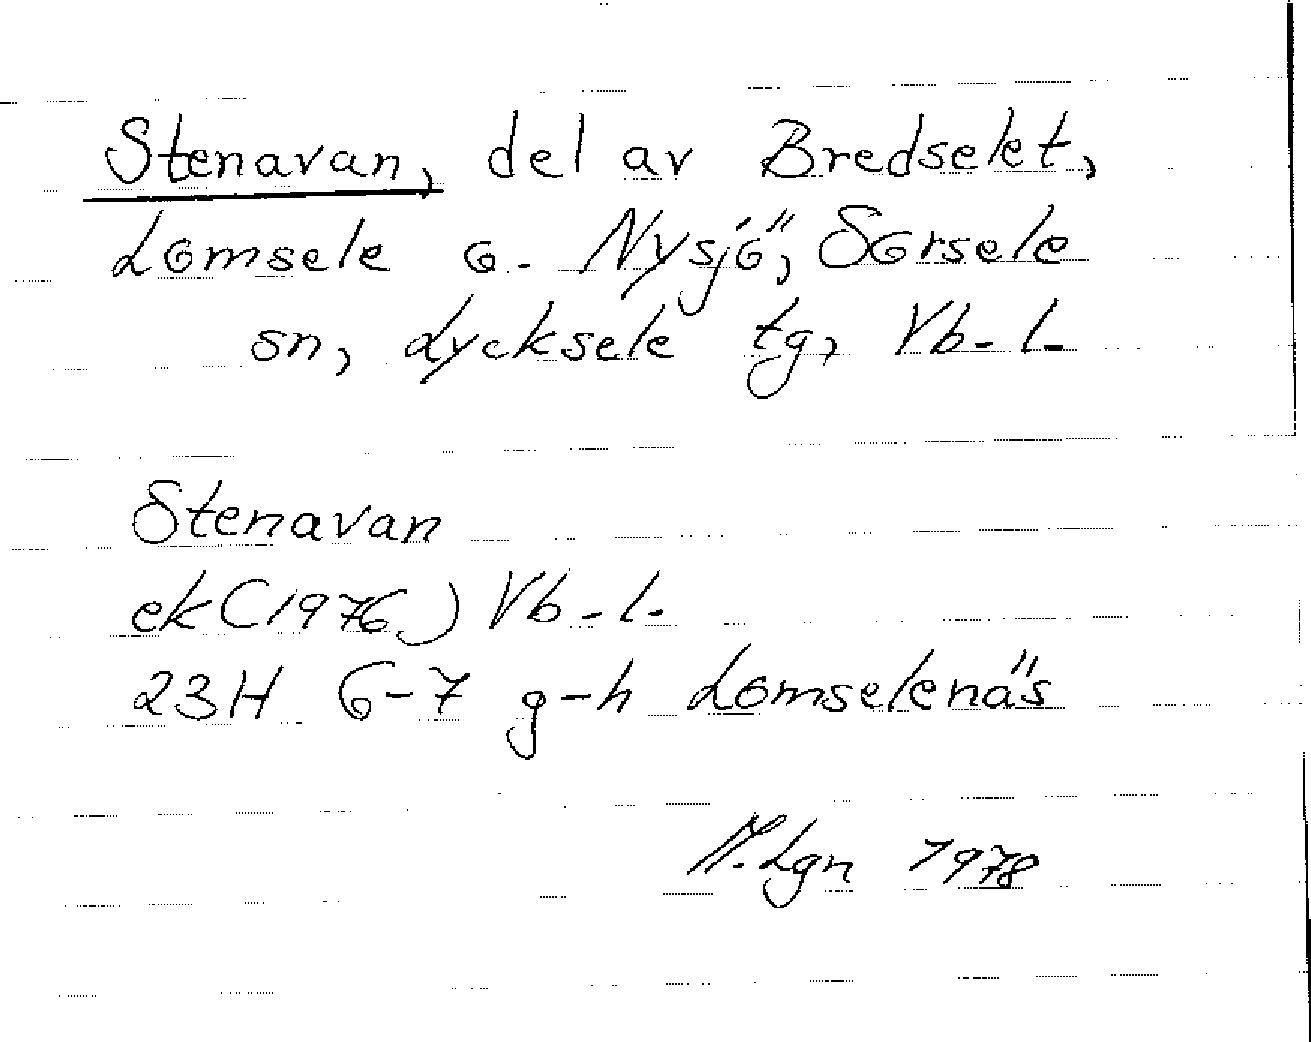 Stenavan, del av Bredselet,
Lomsele o. Nysjö, Sorsele
sn, Lycksele tg, Vb. l.
Stenavan
ek (1976) Vb. l.
23H 6-7 g-h Lomselenäs
M. Lgn 1978